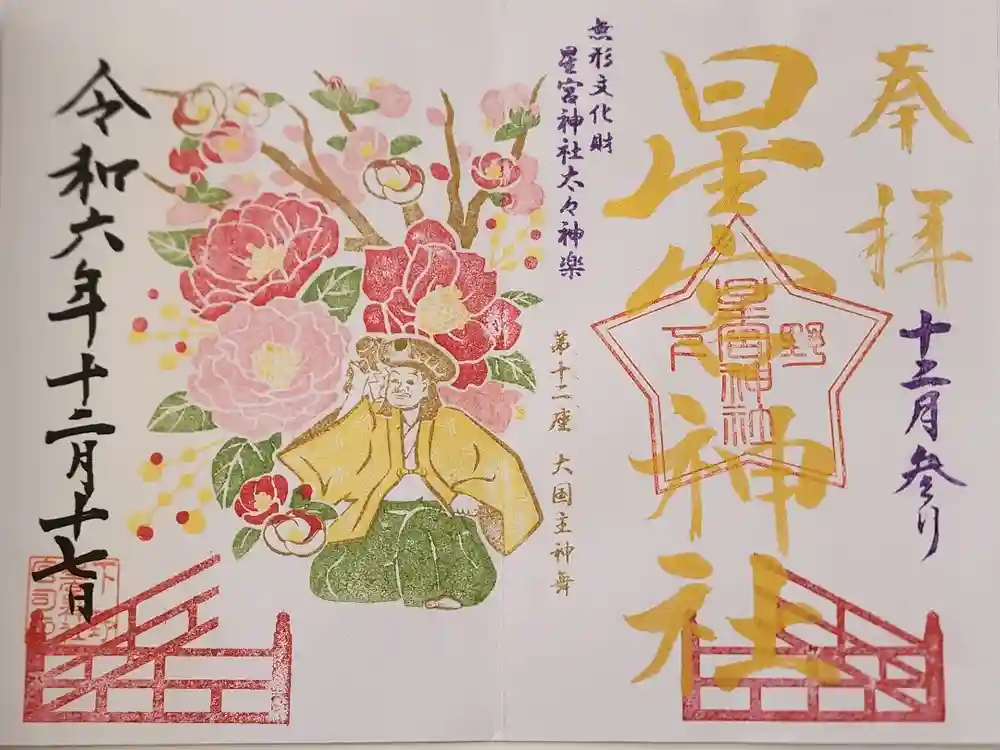 奉拝
十二月参り
星宮神社
下野
星宮神社
無形文化財
星宮神社太々神楽
第十二座 大国主神舞
令和六年十二月十七日